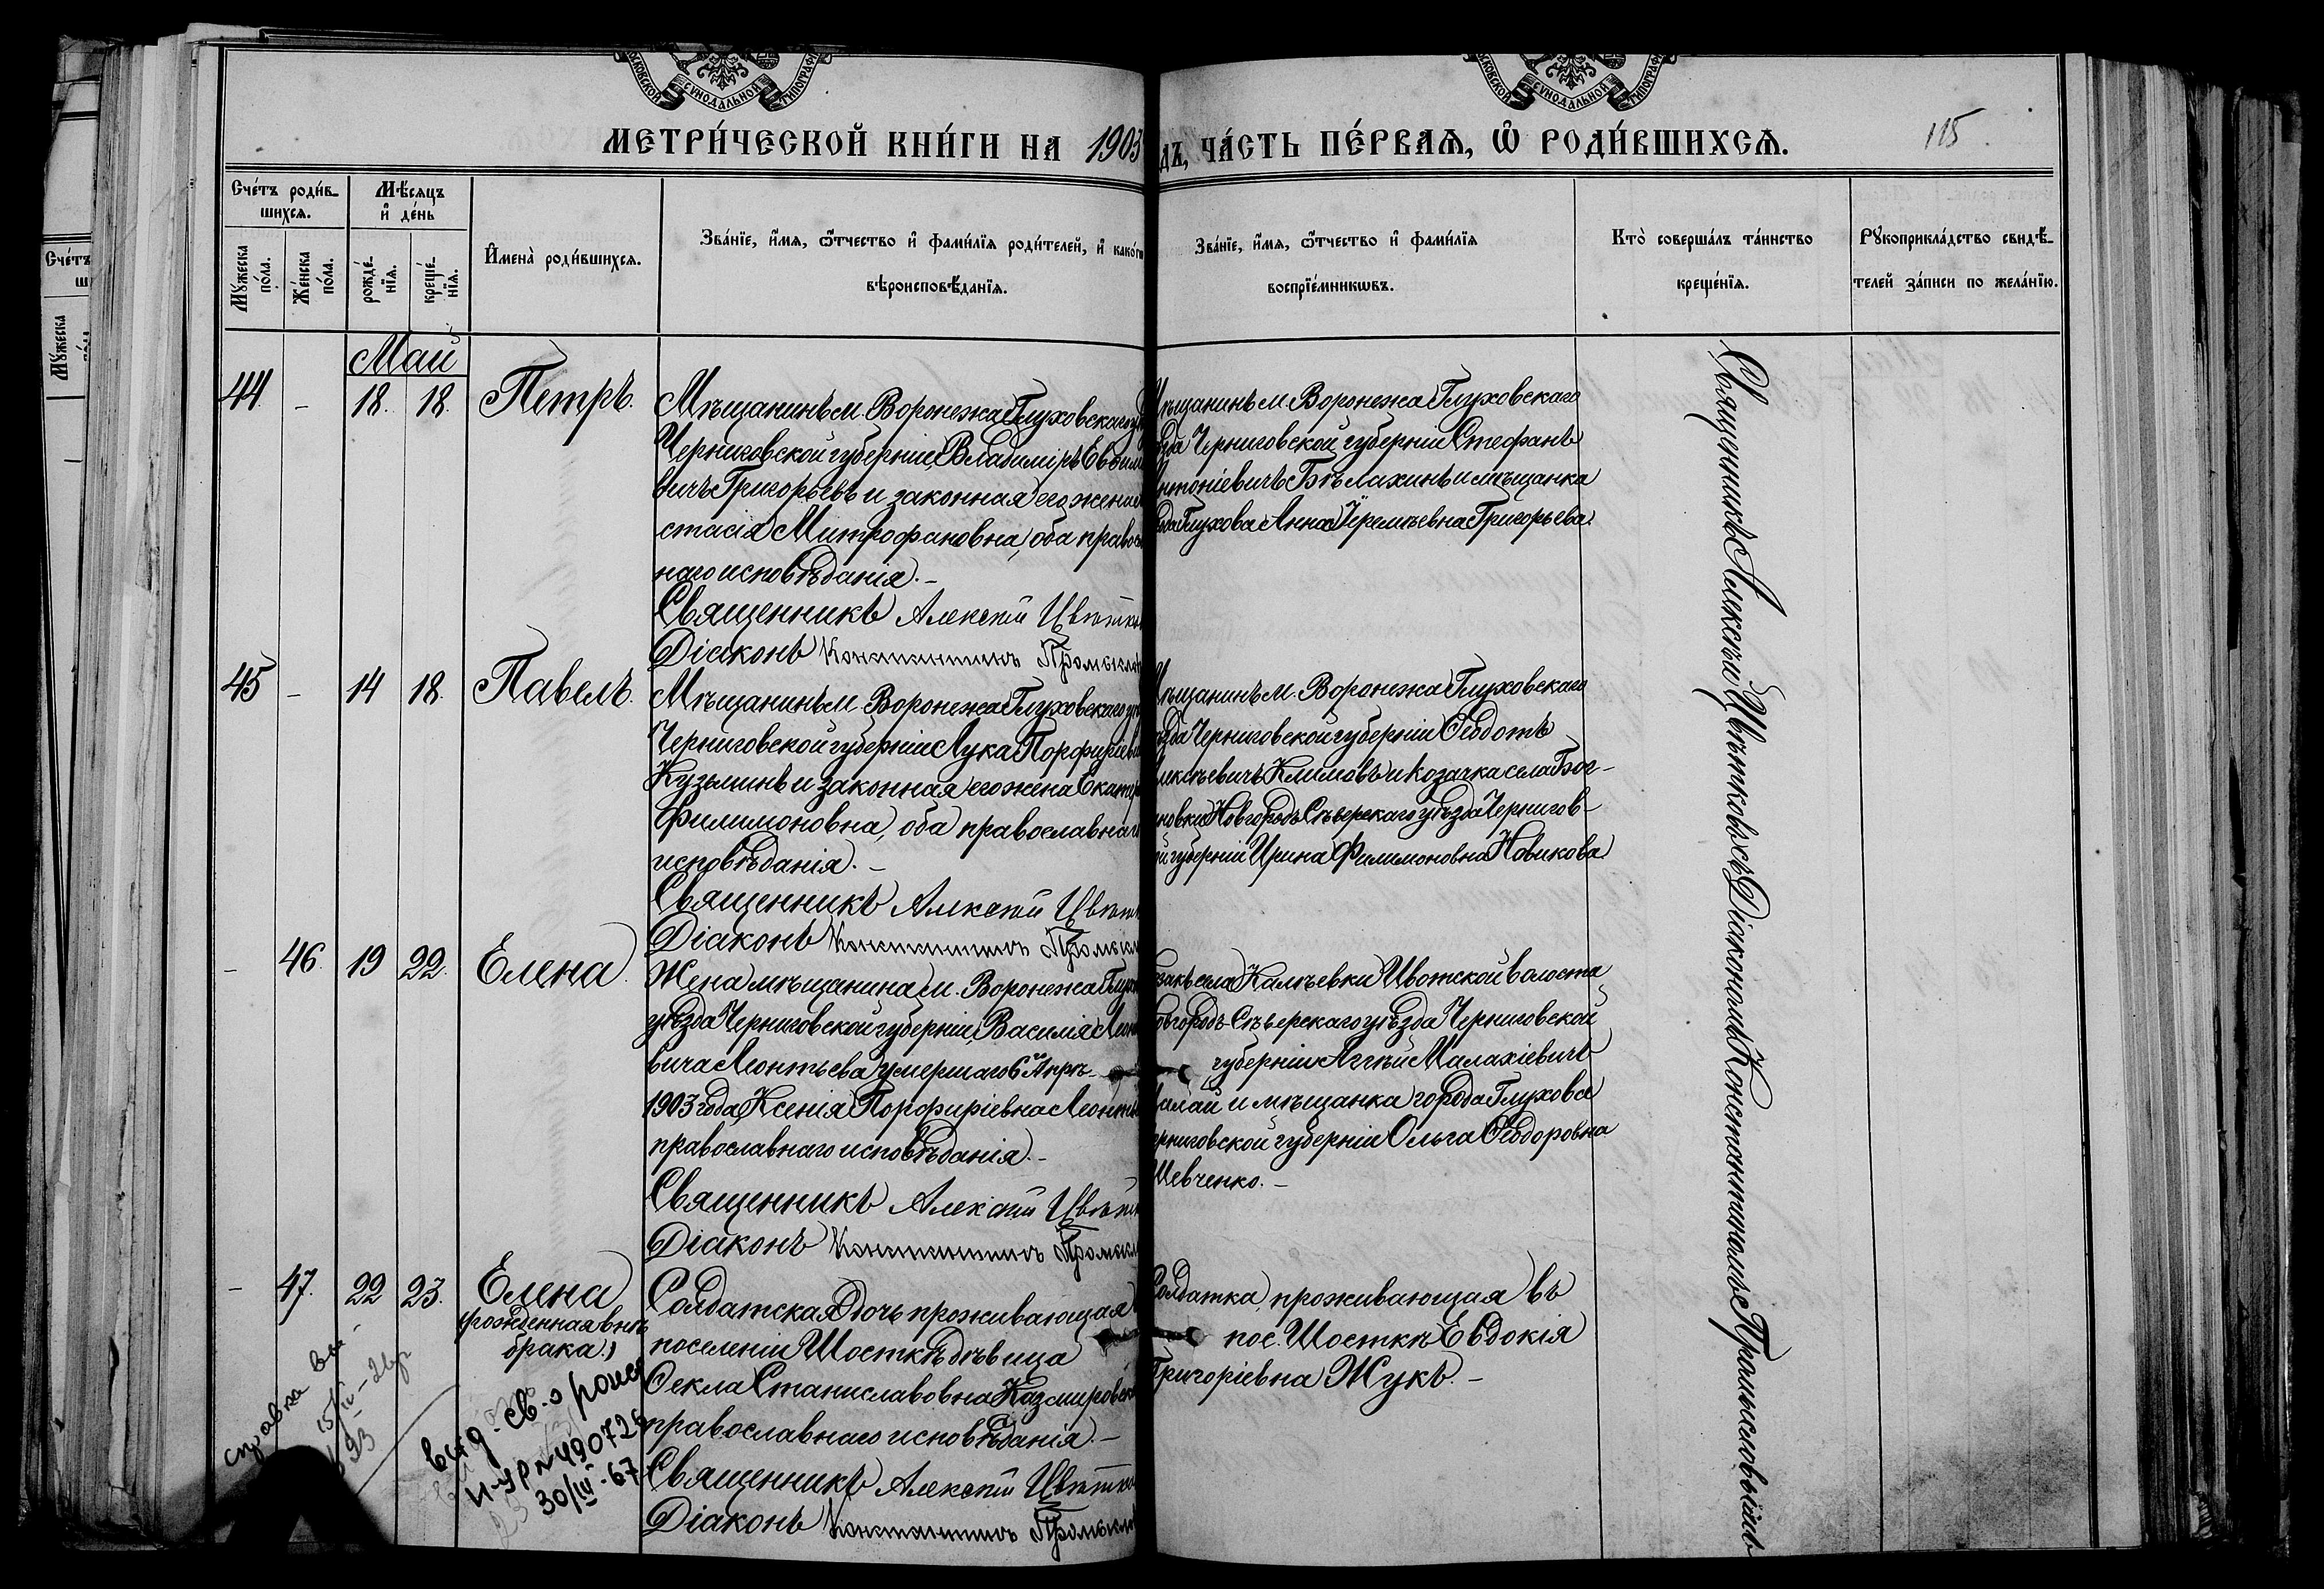 МЕТРИ́ЧЕСКОЙ КНИ́ГИ НА 1903
ДЪ, ЧА́СТЬ ПЕ́РВАѦ, Ѽ РОДИ́ВШИХСѦ.
115
Сче́тъ роди́в-
шихсѧ.
Мѣ́сѧцъ
и҆ де́нь
Мꙋ́жеска
по́ла.
Же́нска
по́ла.
рожде́-
нїѧ.
креще́-
нїѧ.
И҆мена̀ роди́вшихсѧ.
Зва́нїе, и҆́мѧ, ѻ҆́тчество и҆ фами́лїѧ роди́телей, и҆ како́гѡ
вѣроисповѣ́данїѧ.
Зва́нїе, и҆́мѧ, ѻ҆́тчество и҆ фами́лїѧ
воспрїе́мникѡвъ.
Кто̀ соверша́лъ та́инство
креще́нїѧ.
Рꙋкоприкла́дство свидѣ́-
телей за́писи по жела́нїю.
Май
44 - 18. 18. Петръ.
Мѣщанинъ м. Воронежа Глуховскаго у
Черниговской губерніи Владиміръ Евѳим
вичъ Григорьевъ и законная его жена
стасія Митрофановна, оба правос
наго исповѣданія. -
Священникъ Алексѣй Цвѣтко
Діаконъ Константинъ Промысло
Мѣщанинъ м. Воронежа Глуховскаго
ѣзда Черниговской губерніи Стефанъ
Антоніевичъ Бѣлахинъ и мѣщанка
ода Глухова Анна Іереміевна Григорьева
45 - 14 18. Павелъ.
Мѣщанинъ м. Воронежа Глуховскаго уѣ
Черниговской губерніи Лука Порфиріев
Кузьминъ и законная его жена Екатер
Филимоновна, оба православнаг
исповѣданія. -
Священникъ Алексѣй Цвѣт
Діаконъ Константинъ Промысл
Мѣщанинъ м. Воронежа Глуховскаго
ѣзда Черниговской губерніи Ѳеодотъ
Алексѣевичъ Климовъ и козачка села Бог-
новки Новгородъ Сѣверскаго уѣзда Чернигов-
ой губерніи Ирина Филимоновна Новикова
- 46. 19 22. Елена.
Жена мѣщанина м. Воронежа Глухо
уѣзда Черниговской губерніи, Василія Леон
вича Леонтьева умершаго 6й Апрѣ-
1903 года, Ксенія Порфиріевна Леонть
православнаго исповѣданія. -
Священникъ Алексѣй Цвѣтк
Діаконъ Константинъ Промысл
озакъ села Калѣевки Ивотской волости
овгородъ-Сѣверскаго уѣзда Черниговской
губерніи Аггѣй Малахіевичъ
алай и мѣщанка города Глухова
ерниговской губерніи Ольга Ѳеодоровна
Шевченко. -
- 47. 22 23. Елена
(рожденная внѣ
брака)
Солдатская дочь проживающая
поселеніи Шосткѣ дѣвица
Ѳекла Станиславовна Казмировск
православнаго исповѣданія. -
Священникъ Алексѣй Цвѣтко
Діаконъ Константинъ Промысло
Солдатка, проживающая въ
пос. Шосткѣ Евдокія
Григоріевна Жукъ. -
Священникъ Алексѣй Цвѣтковъ съ Діакономъ Константиномъ Промысловымъ
справка
выд. св. о рожд
II-УР № 490726
30/III-67
Сче́тъ
Мꙋ́жеска